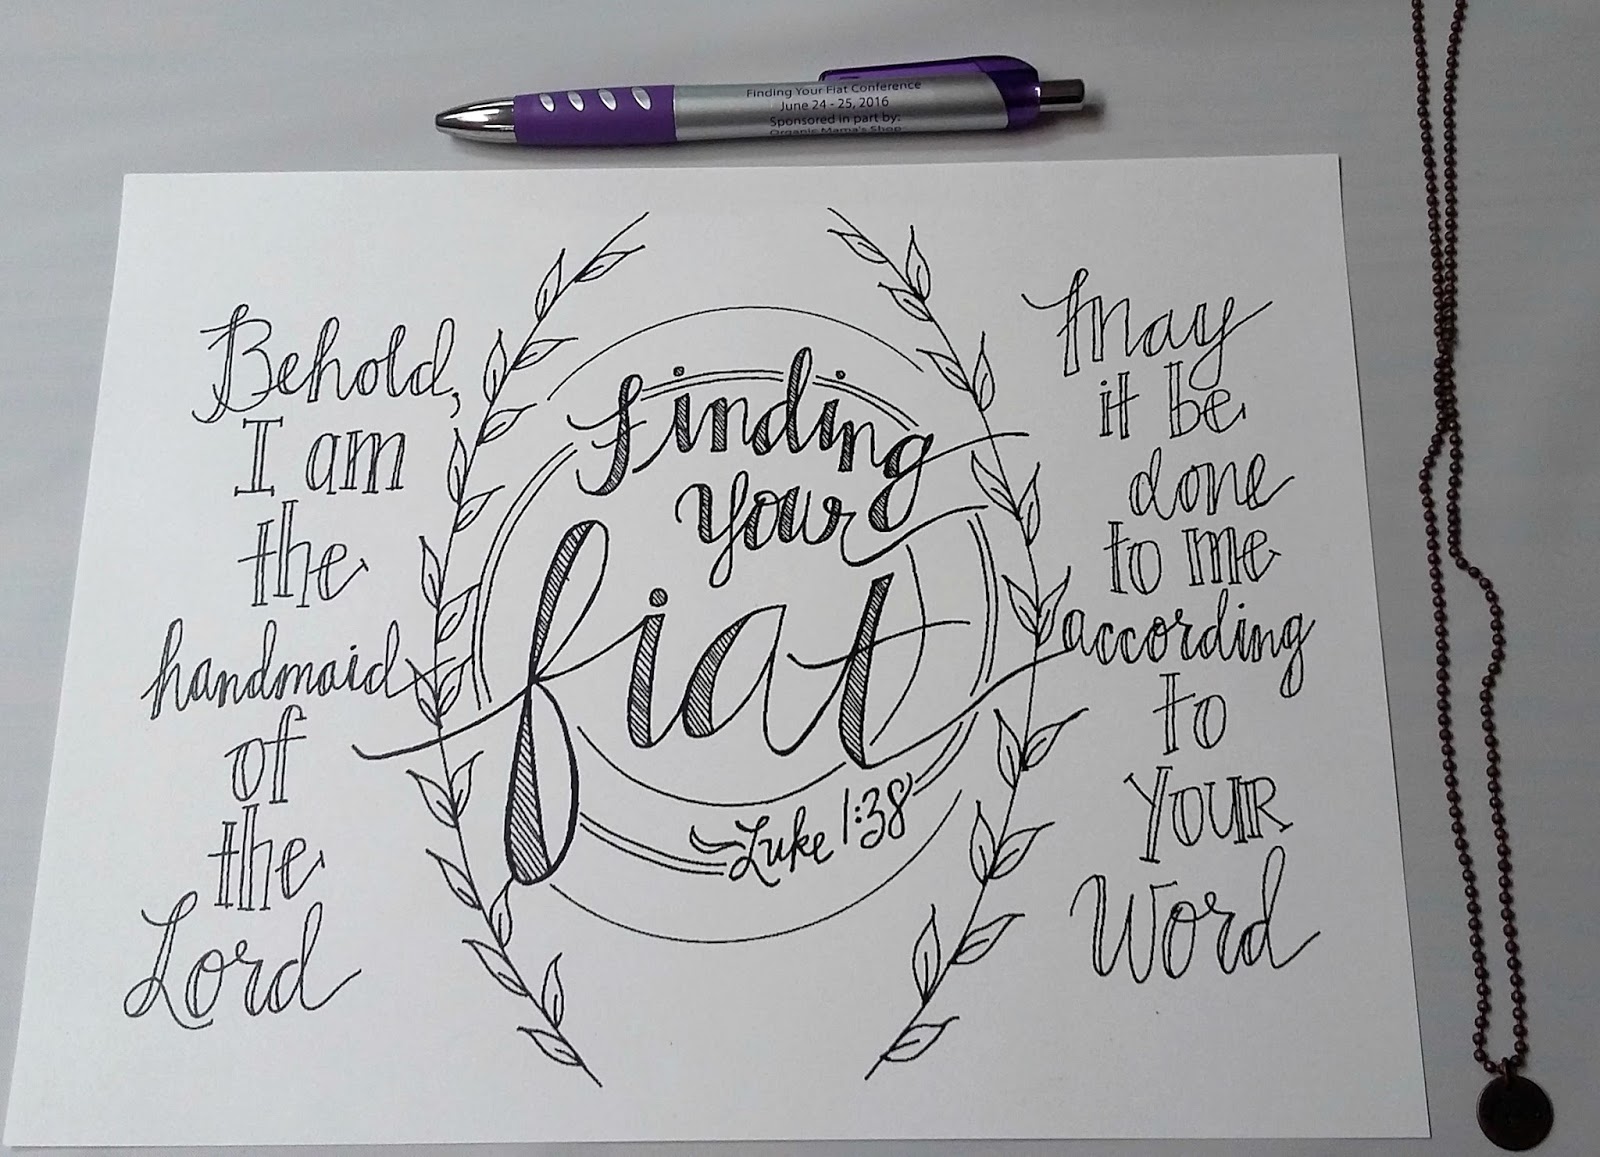 Finding Your Fiat Conference
June 24 - 25, 2016
Sponsored in part by:
Organic Mama's Shop
Behold,
I am
the
handmaid
of
the
Lord
Finding
Your
fiat
~Luke 1:38
May
it be
done
to me
according
to
YOUR
Word